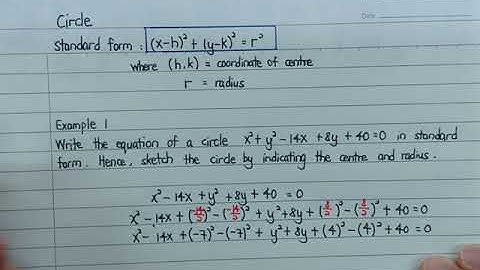 Circle
Date
Standard form : (x-h)² + (y-k)² = r²
where (h,k) = coordinate of centre
r = radius
Example 1
Write the equation of a circle x² + y² - 14x + 8y + 40 = 0 in standard
form. Hence, sketch the circle by indicating the centre and radius.
x² - 14x + y² + 8y + 40 = 0
x² - 14x + (14/2)² - (14/2)² + y² + 8y + (8/2)² - (8/2)² + 40 = 0
x² - 14x + (-7)² - (-7)² + y² + 8y + (4)² - (4)² + 40 = 0